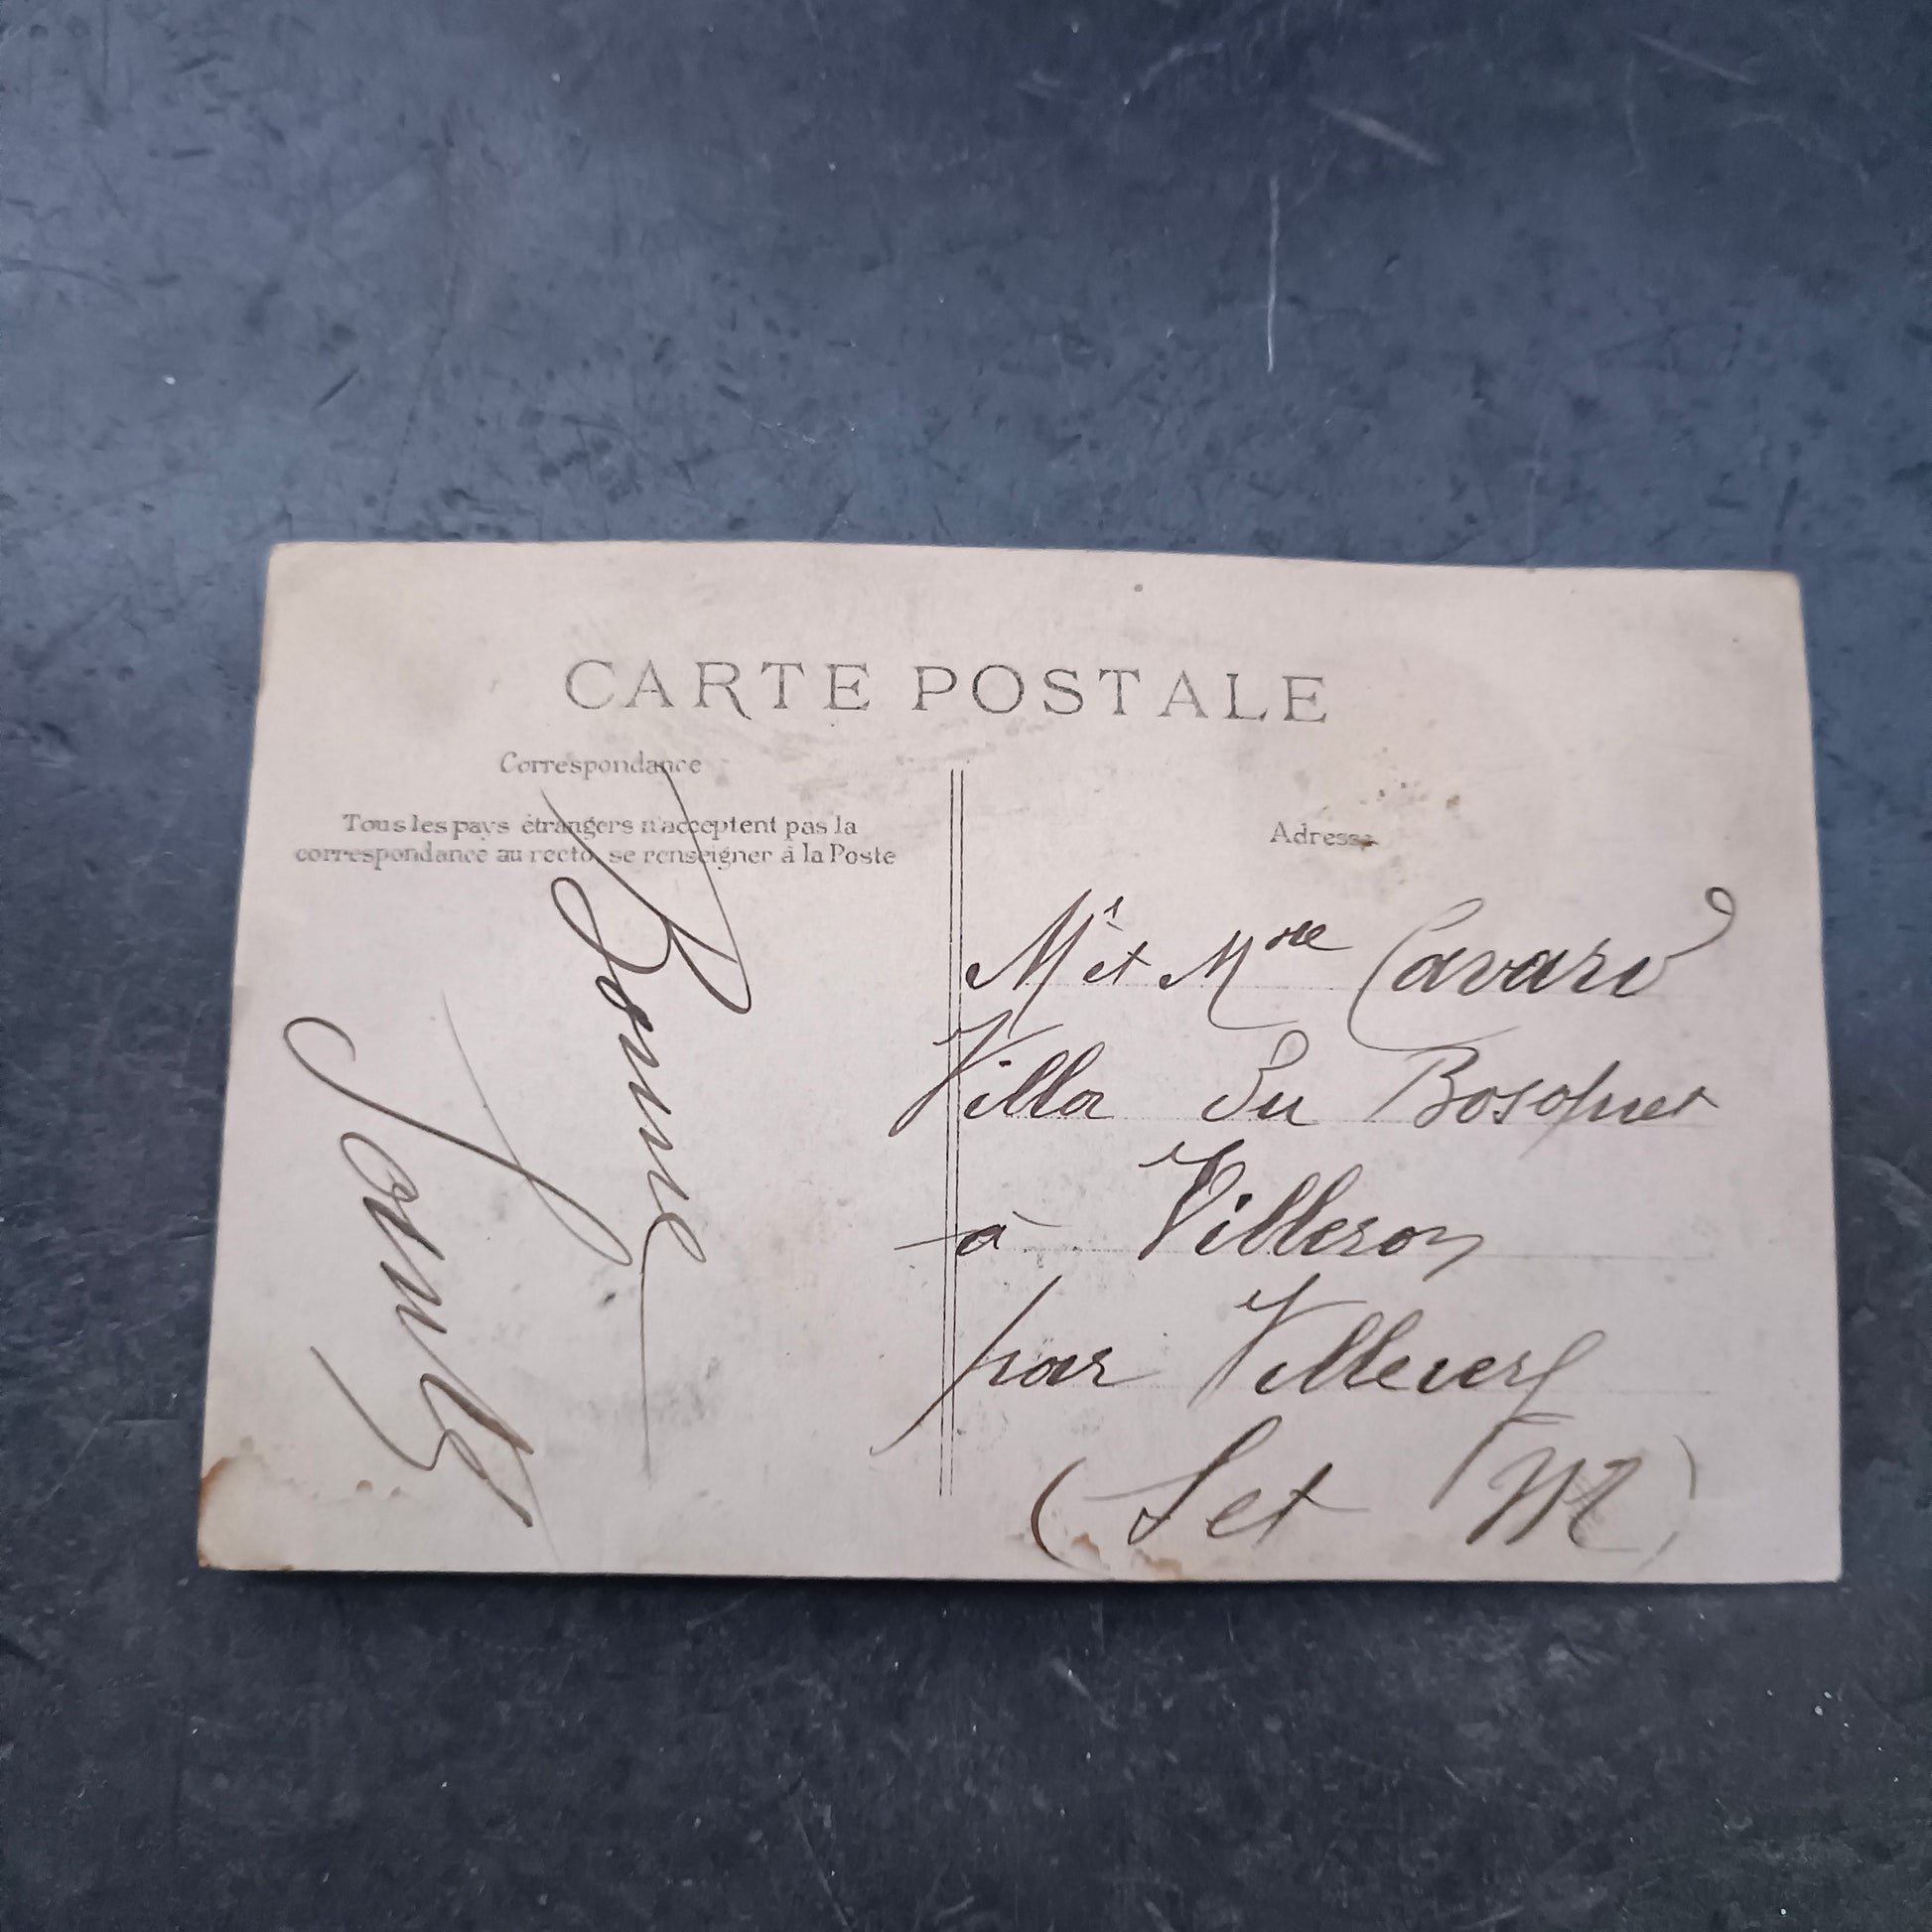 CARTE POSTALE
Correspondance
Tous les pays étrangers n'acceptent pas la
correspondance au recto, se renseigner à la Poste
Bonne
Adresse
Mr et Mme Cavard
Villa du Bosquet
à Villeron
par
(S et M)